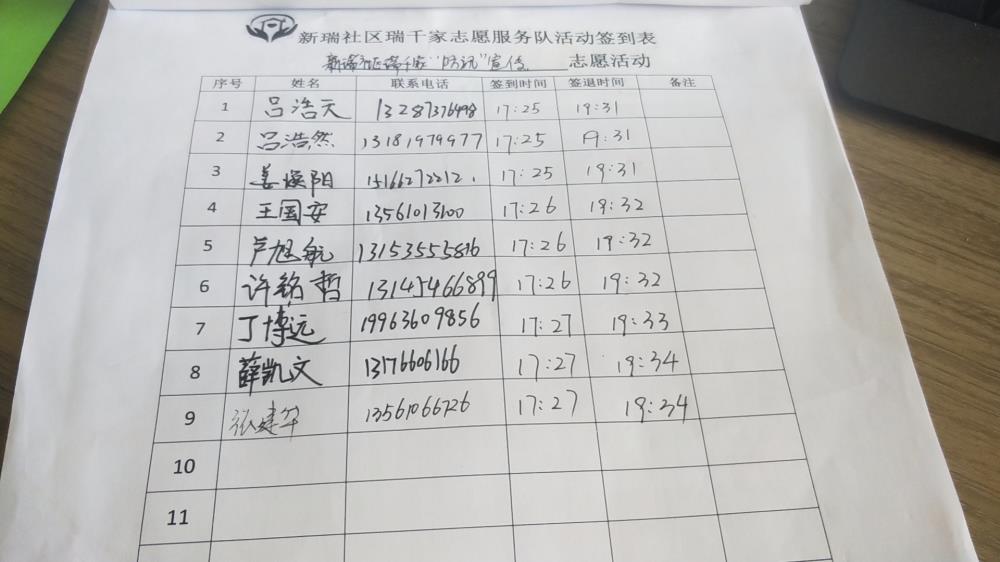 新瑞社区瑞千家志愿服务队活动签到表
新瑞社区瑞千家“防汛”宣传 志愿活动
序号 姓名 联系电话 签到时间 签退时间 备注
1 吕浩天 13287376498 17:25 19:31
2 吕浩然 13181979977 17:25 19:31
3 姜焕阳 15166272212 17:25 19:31
4 王国安 13561013100 17:26 19:32
5 卢旭航 13153555816 17:26 19:32
6 许铭哲 13145466899 17:26 19:32
7 丁博远 19963609856 17:27 19:33
8 薛凯文 13176606166 17:27 19:34
9 张建华 13561066726 17:27 19:34
10
11